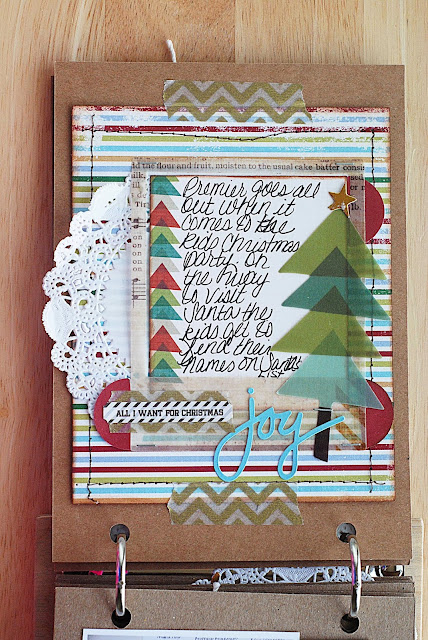 and the flour and fruit, moisten to the usual cake batter consis
Premier goes all
out when it
comes to the
kids Christmas
party. On
the hway
to visit
Santa the
kids get to
find their
names on Santa's
LIST
ALL I WANT FOR CHRISTMAS
joy